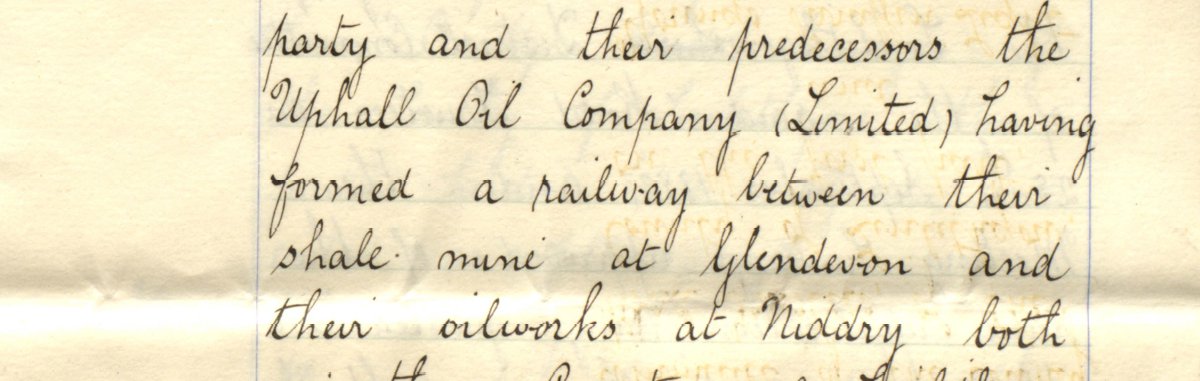 party and their predecessors the
Uphall Oil Company (Limited) having
formed a railway between their
shale mine at Glendevon and
their oilworks at Niddry both